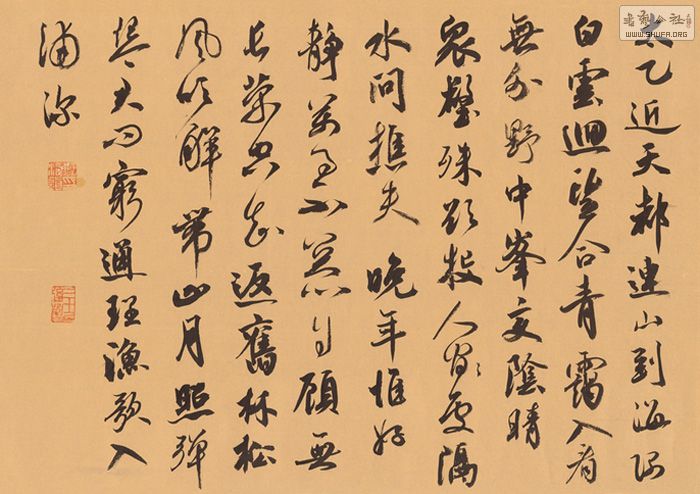 太乙近天都連山到海隅
白雲迴望合青靄入看
無分野中峯變陰晴
衆壑殊欲投人宿處隔
水問樵夫 晚年惟好
靜萬事不關心自顧無
長策空知返舊林松
風吹解帶山月照彈
琴君問窮通理漁歌入
浦深
書法公社
WWW.SHUFA.ORG